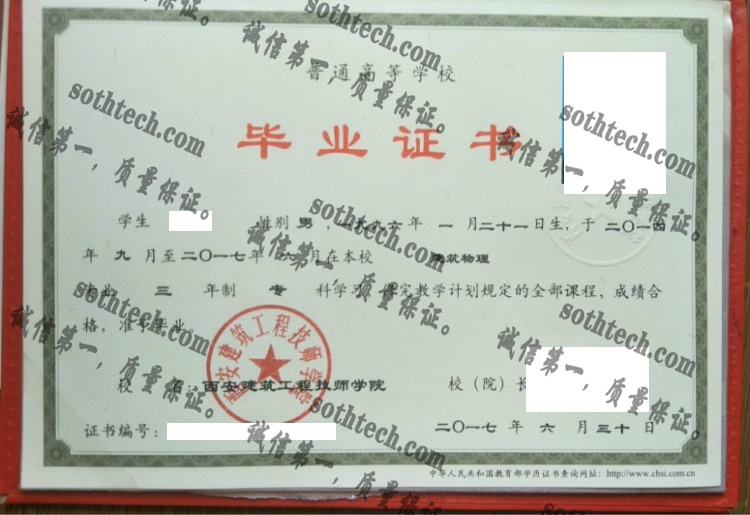 普通高等学校
毕业证书
学生 性别 男，一九九六年 一 月二十一日生，于 二〇一四
年 九 月至二〇一七年 六 月在本校 建筑物理
专业 三 年制 专 科学习 完教学计划规定的全部课程，成绩合
格，准予毕业。
校 名：西安建筑工程技师学院 校（院）长
证书编号： 二〇一七 年 六 月三十日
中华人民共和国教育部学历证书查询网址：http://www.chsi.com.cn
西安建筑工程技师学院
sothtech.com
诚信第一，质量保证。
sothtech.com
诚信第一，质量保证。
sothtech.com
诚信第一，质量保证。
sothtech.com
诚信第一，质量保证。
sothtech.com
诚信第一，质量保证。
sothtech.com
诚信第一，质量保证。
sothtech.com
诚信第一，质量保证。
sothtech.com
诚信第一，质量保证。